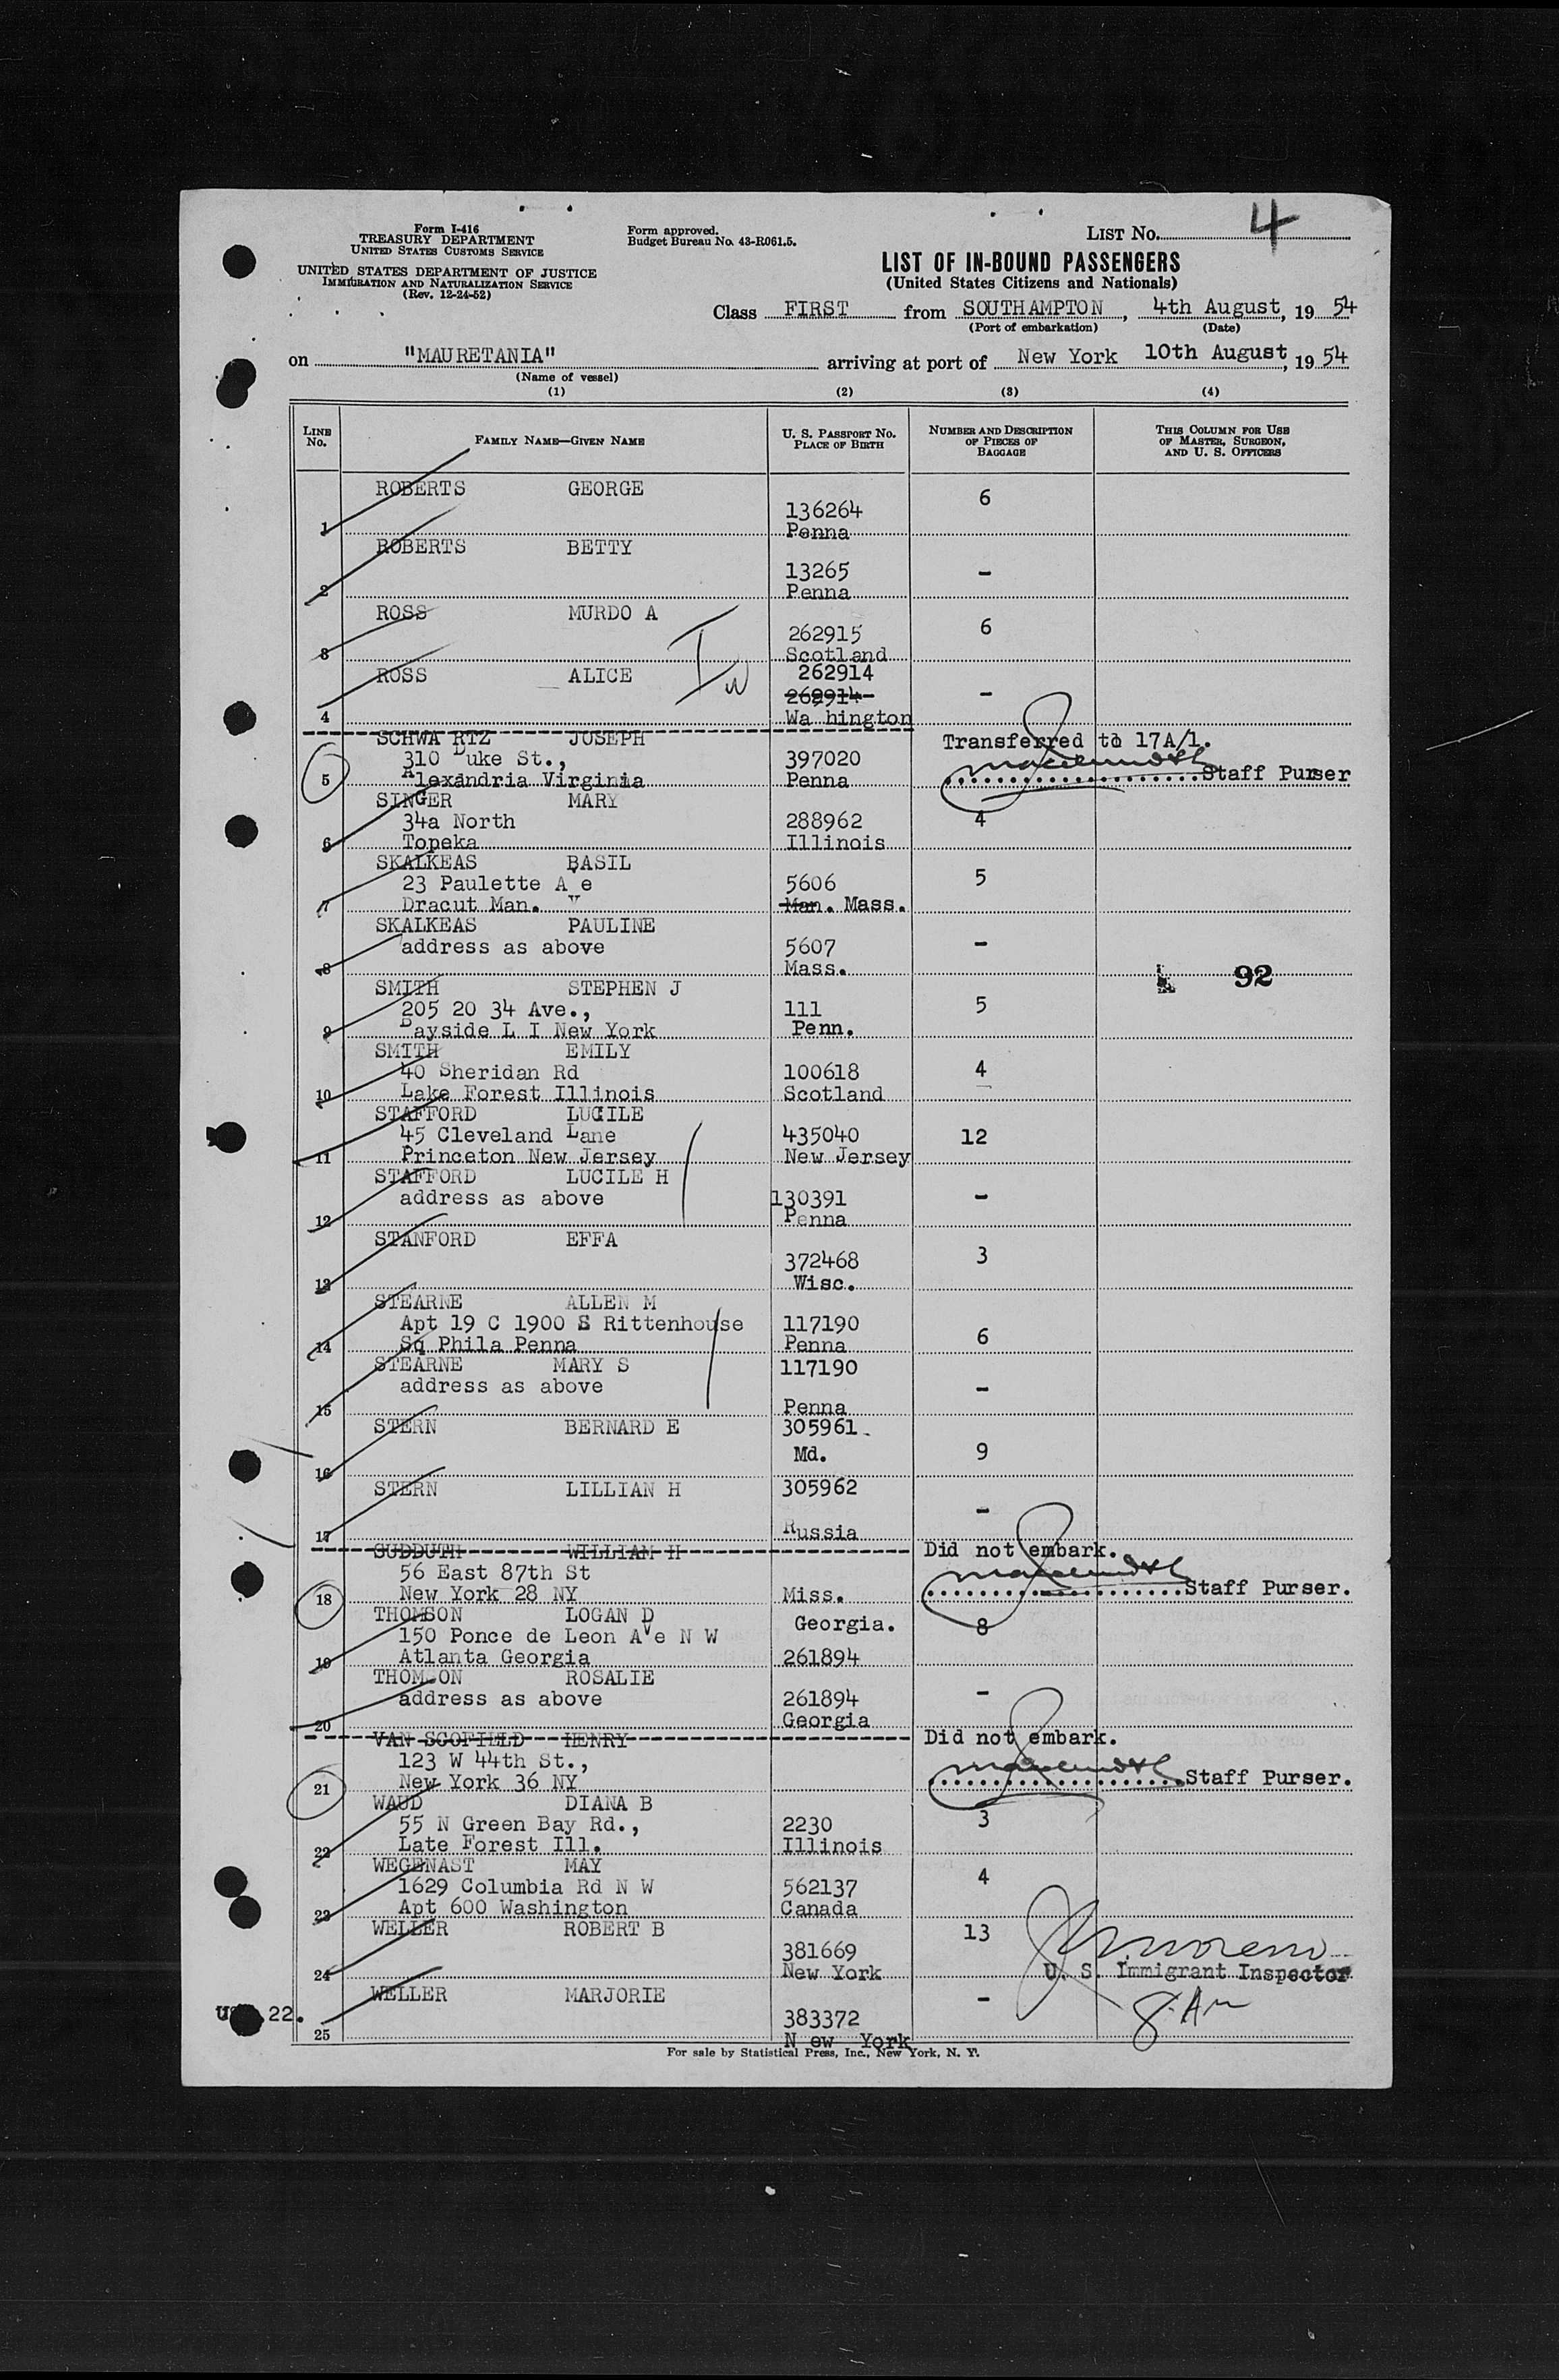 Form I-416
TREASURY DEPARTMENT
UNITED STATES CUSTOMS SERVICE
UNITED STATES DEPARTMENT OF JUSTICE
IMMIGRATION AND NATURALIZATION SERVICE
(Rev. 12-24-52)
Form approved.
Budget Bureau No. 43-R061.5.
LIST No. 4
LIST OF IN-BOUND PASSENGERS
(United States Citizens and Nationals)
Class FIRST from SOUTHAMPTON, 4th August, 19 54
(Port of embarkation) (Date)
on "MAURETANIA" arriving at port of New York 10th August, 19 54
(Name of vessel)
(1) (2) (3) (4)
LINE No. FAMILY NAME—GIVEN NAME U. S. PASSPORT No. PLACE OF BIRTH NUMBER AND DESCRIPTION OF PIECES OF BAGGAGE THIS COLUMN FOR USE OF MASTER, SURGEON, AND U. S. OFFICERS
ROBERTS GEORGE 6
136264
1 Penna
ROBERTS BETTY
13265 -
2 Penna
ROSS MURDO A 6
262915
3 Scotland
ROSS ALICE 262914
262914 -
4 Wa hington
SCHWA RTZ JOSEPH Transferred to 17A/1.
310 Duke St., 397020
5 Alexandria Virginia Penna Staff Purser
SINGER MARY
34a North 288962 4
6 Topeka Illinois
SKALKEAS BASIL
23 Paulette Ave 5606 5
7 Dracut Man. Man. Mass.
SKALKEAS PAULINE
address as above 5607 -
8 Mass. 92
SMITH STEPHEN J
205 20 34 Ave., 111 5
9 Bayside L I New York Penn.
SMITH EMILY
40 Sheridan Rd 100618 4
10 Lake Forest Illinois Scotland
STAFFORD LUCILE
45 Cleveland Lane 435040 12
11 Princeton New Jersey New Jersey
STAFFORD LUCILE H
address as above 130391 -
12 Penna
STANFORD EFFA
372468 3
13 Wisc.
STEARNE ALLEN M
Apt 19 C 1900 S Rittenhouse 117190
14 Sq Phila Penna Penna 6
STEARNE MARY S 117190
address as above -
15 Penna
STERN BERNARD E 305961
Md. 9
16
STERN LILLIAN H 305962
-
17 Russia
SUDDUTH WILLIAM H Did not embark.
56 East 87th St
18 New York 28 NY Miss. Staff Purser.
THOMSON LOGAN D Georgia. 8
150 Ponce de Leon Ave N W
19 Atlanta Georgia 261894
THOMSON ROSALIE
address as above 261894 -
20 Georgia
VAN SCOFIELD HENRY Did not embark.
123 W 44th St.,
21 New York 36 NY Staff Purser.
WAUD DIANA B
55 N Green Bay Rd., 2230 3
22 Late Forest Ill. Illinois
WEGENAST MAY
1629 Columbia Rd N W 562137 4
23 Apt 600 Washington Canada
WELLER ROBERT B 13
381669
24 New York U. S. Immigrant Inspector
WELLER MARJORIE -
383372 8 AM
25 N ew York
22.
For sale by Statistical Press, Inc., New York, N. Y.